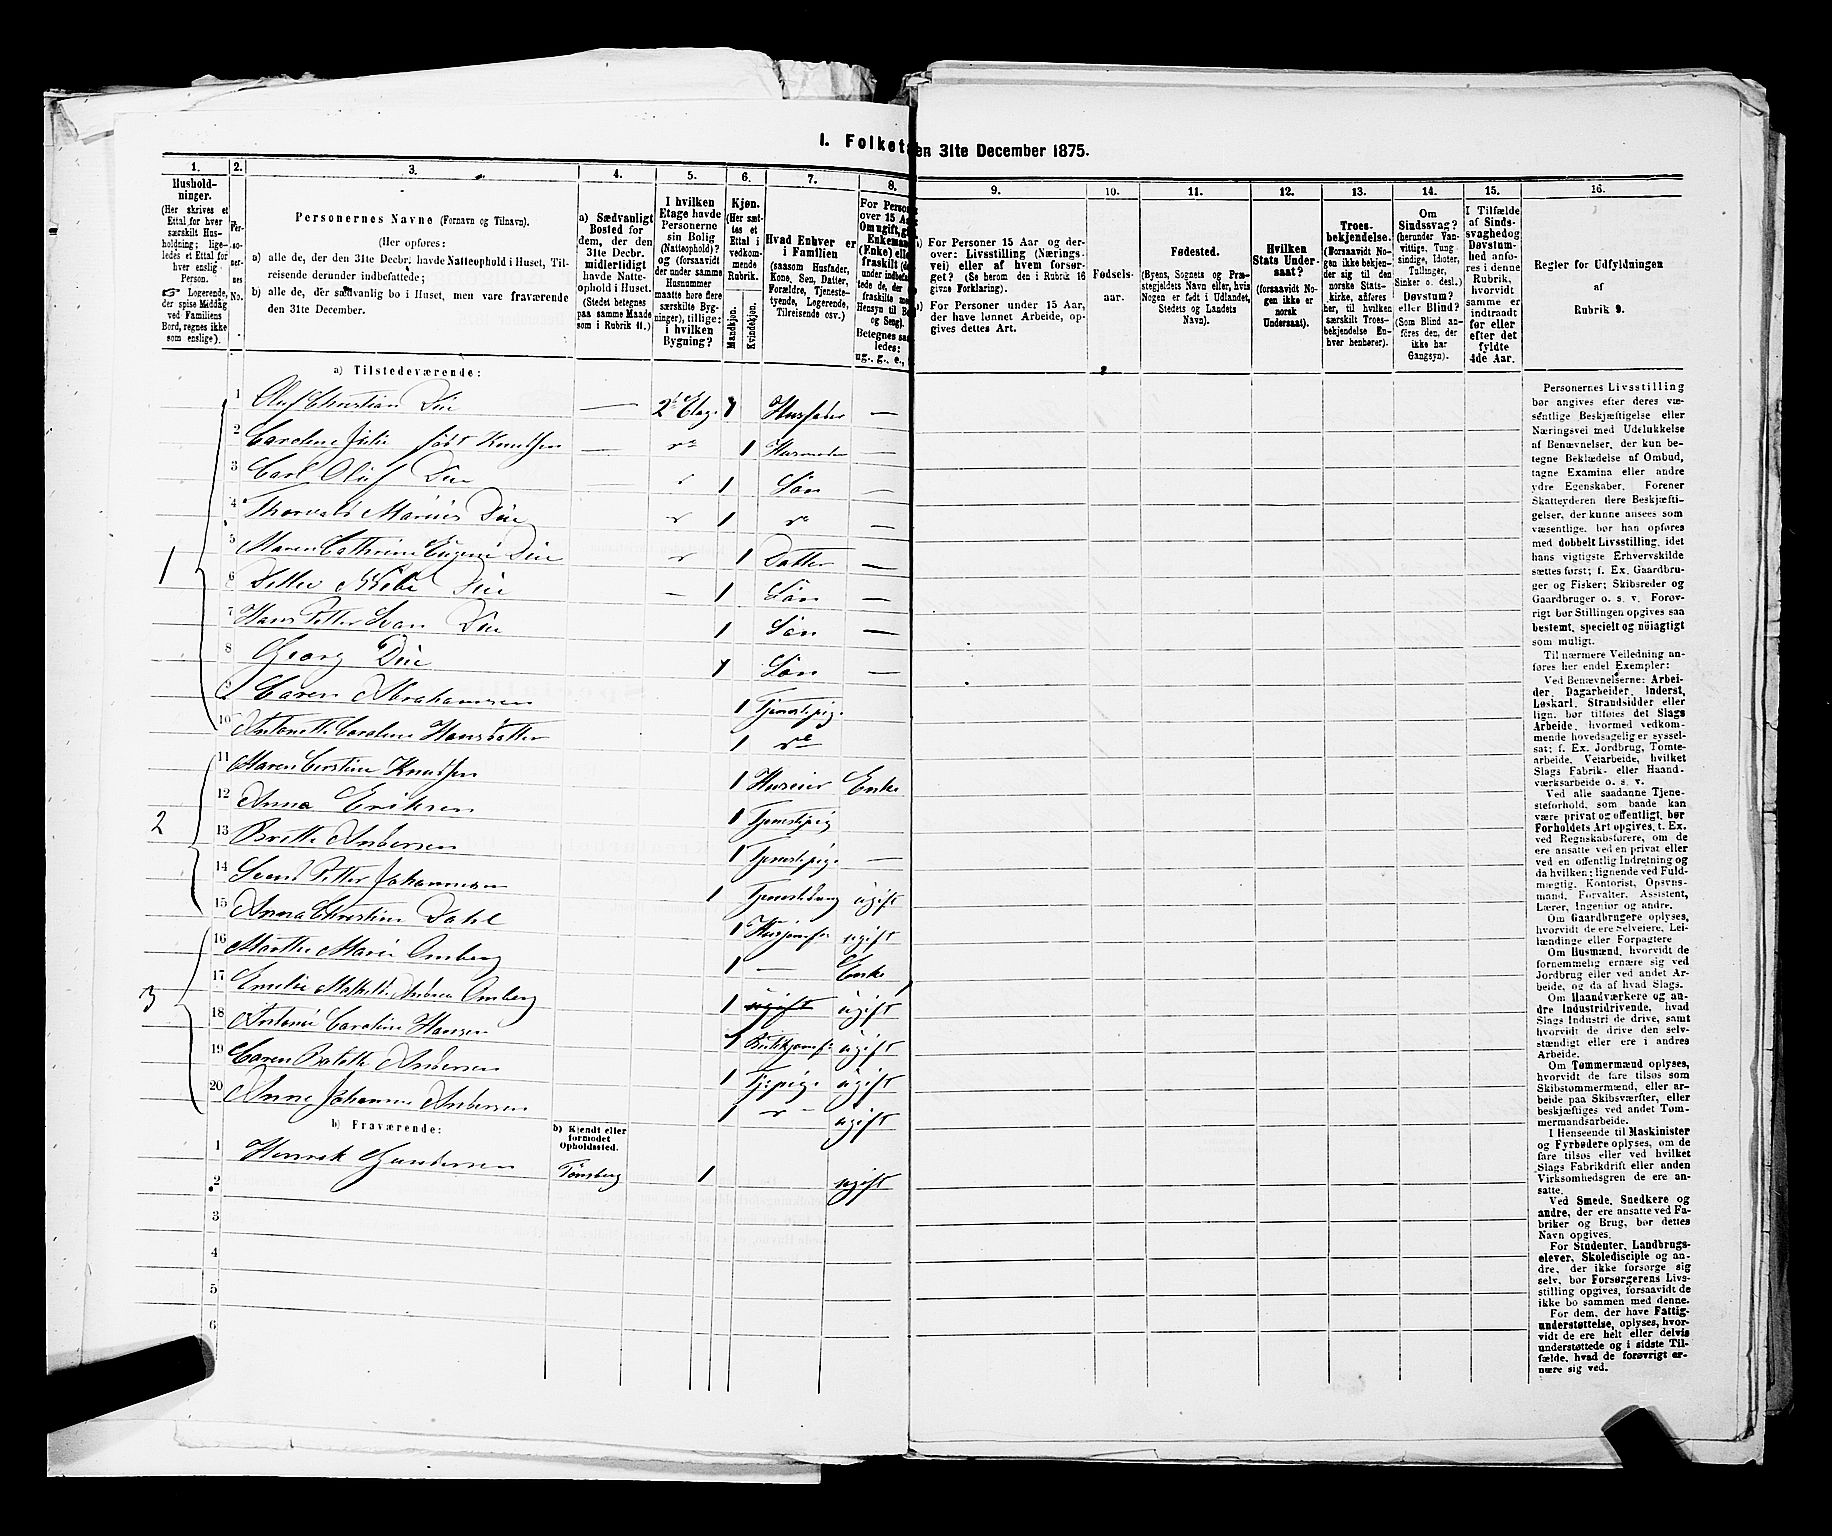 I. Folket
en 31te December 1875.
1.
Hushold-
ninger.
(Her skrives et
Ettal for hver
særskilt Hus-
holdning; lige-
ledes et Ettal for
hver enslig
Person.
☞ Logerende,
der spise Middag
ved Familiens
Bord, regnes ikke
som enslige).
2.
Per-
so-
ner-
nes
No.
3.
Personernes Navne (Fornavn og Tilnavn).
(Her opføres:
a) alle de, der den 31te Decbr. havde Natteophold i Huset, Til-
reisende derunder indbefattede;
b) alle de, der sædvanlig bo i Huset, men vare fraværende
den 31te December.
4.
a) Sædvanligt
Bosted for
dem, der den
31te Decbr.
midlertidigt
havde Natte-
ophold i Huset.
(Stedet betegnes
paa samme Maade
som i Rubrik 11.)
5.
I hvilken
Etage havde
Personerne
sin Bolig
(Natteophold)?
og (forsaavidt
der under samme
Husnummer
maatte høre flere
særskilte Byg-
ninger), tillige:
i hvilken
Bygning?
6.
Kjøn.
(Her sæt-
tes et
Ettal i
vedkom-
mende
Rubrik.
Mandkjøn.
Kvindekjøn.
7.
Hvad Enhver er
i Familien
(saasom Husfader,
Kone, Søn, Datter,
Forældre, Tjeneste-
tyende, Logerende,
Tilreisende osv.)
8.
For Person
over 15 Aar
Om ugift, g
Enkemand
(Enke) elle
fraskilt (d
under indbefat
tede de, der
fraskilte me
Hensyn til Bo
og Seng).
Betegnes saa
ledes:
ug., g., e.,
9.
For Personer 15 Aar og der-
over: Livsstilling (Nærings-
vei) eller af hvem forsør-
get? (Se herom den i Rubrik 16
givne Forklaring).
For Personer under 15 Aar,
der have lønnet Arbeide, op-
gives dettes Art.
10.
Fødsels-
aar.
11.
Fødested.
(Byens, Sognets og Præ-
stegjeldets Navn eller, hvis
Nogen er født i Udlandet,
Stedets og Landets
Navn).
12.
Hvilken
Stats Under-
saat?
(forsaavidt No-
gen ikke er
norsk
Undersaat).
13.
Troes-
bekjendelse.
(Forsaavidt No-
gen ikke bekjen-
der sig til den
norske Stats-
kirke, anføres
her, til hvilken
særskilt Troes-
bekjendelse En-
hver henhører).
14.
Om
Sindssvag?
(herunder Van-
vittige, Tung-
sindige, Idioter,
Tullinger,
Sinker o. desl.)
Døvstum?
eller Blind?
(Som Blind an-
føres den, der
ikke har
Gangsyn).
15.
I Tilfælde
af Sinds-
svaghed og
Døvstum-
hed anfø-
res i denne
Rubrik,
hvorvidt
samme er
indtraadt
før eller
efter det
fyldte
4de Aar.
16.
Regler for Udfyldningen
af
Rubrik 9.
a) Tilstedeværende:
1
1 Oluf Christian Due — 2d Etage 1 Husfader —
2 Caroline Julie født Knudsen — do 1 Husmoder —
3 Carl Oluf Due — 1 Søn —
4 Thorvald Marius Due 1 do —
5 Maren Cathrine Eugenie Due 1 Datter —
6 Ditlev Due — 1 Søn —
7 Hans Petter Due 1 Søn —
8 Georg Due 1 Søn —
9 Caren Abrahamsen 1 Tjenestepige
10 Antonette Caroline Hansdatter 1 do
2
11 Maren Cerstine Knudsen 1 Huseier Enke
12 Anna Eriksen 1 Tjenestepig
13 Britte Andersen 1 Tjenestepige —
14 Svend Petter Johannesen 1 Tjenestedreng ugift
15 Anna Christine Dahl 1 Husjomfr ugift
3
16 Marthe Marie Omberg 1 — Enke
17 Emilie Mathilde Andrea Omberg 1 ugift ugift
18 Antonie Caroline Hansen 1 Butikjomfr ugift
19 Caren Andersen 1 Tjpige ugift
20 Anne Johanne Andersen 1 do ugift
b) Fraværende:
b) Kjendt eller
formodet
Opholdssted.
1 Henrik Gundersen Tønsberg 1 ugift
2
3
4
5
6
Personernes Livsstilling
bør angives efter deres væ-
sentlige Beskjæftigelse eller
Næringsvei med Udelukkelse
af Benævnelser, der kun be-
tegne Beklædelse af Ombud,
tagne Examina eller andre
ydre Egenskaber. Forener
Skatteyderen flere Beskjæfti-
gelser, der kunne ansees som
væsentlige, bør han opføres
med dobbelt Livsstilling, idet
hans vigtigste Erhvervskilde
sættes først; f. Ex. Gaardbru-
ger og Fisker; Skibsreder og
Gaardbruger o. s. v. Forøv-
rigt bør Stillingen opgives saa
bestemt, specielt og nöiagtigt
som muligt.
Til nærmere Veiledning an-
føres her endel Exempler:
Ved Benævnelserne: Arbei-
der, Dagarbeider, Inderst,
Løskarl, Strandsidder eller
lign. bør tilføies det Slags
Arbeide, hvormed vedkom-
mende hovedsagelig er syssel-
sat; f. Ex. Jordbrug, Tomte-
arbeide, Veiarbeide, hvilket
Slags Fabrik- eller Haand-
værksarbeide o. s. v.
Ved alle saadanne Tjene-
steforhold, som baade kan
være privat og offentligt, bør
Forholdets Art opgives, t. Ex.
ved Regnskabsførere, om de
ere ansatte ved en privat eller
ved en offentlig Indretning og
da hvilken; lignende ved Fuld-
mægtig, Kontorist, Opsyns-
mand, Forvalter, Assistent,
Lærer, Ingeniør og andre.
Om Gaardbrugere oplyses,
hvorvidt de ere Selveiere, Lei-
lændinge eller Forpagtere
Om Husmænd, hvorvidt de
fornemmelig ernære sig ved
Jordbrug eller ved andet Ar-
beide, og da af hvad Slags.
Om Haandværkere og an-
dre Industridrivende, hvad
Slags Industri de drive, samt
hvorvidt de drive den selv-
stændigt eller ere i andres
Arbeide.
Om Tømmermænd oplyses,
hvorvidt de fare tilsøs som
Skibstømmermænd, eller ar-
beide paa Skibsværfter, eller
beskjæftiges ved andet Tøm-
mermandsarbeide.
I Henseende til Maskinister
og Fyrbødere oplyses, om de
fare tilsøs eller ved hvilket
Slags Fabrikdrift eller anden
Virksomhedsgren de ere an-
satte.
Ved Smede, Snedkere og
andre, der ere ansatte ved Fa-
briker og Brug, bør dettes
Navn opgives.
For Studenter, Landbrugs-
elever, Skoledisciple og an-
dre, der ikke forsørge sig
selv, bør Forsørgerens Livs-
stilling opgives, forsaavidt de
ikke bo sammen med denne.
For dem, der have Fattig-
understøttelse, oplyses, hvor-
vidt de ere helt eller delvis
understøttede og i sidste Til-
fælde, hvad de forøvrigt er-
nære sig ved.